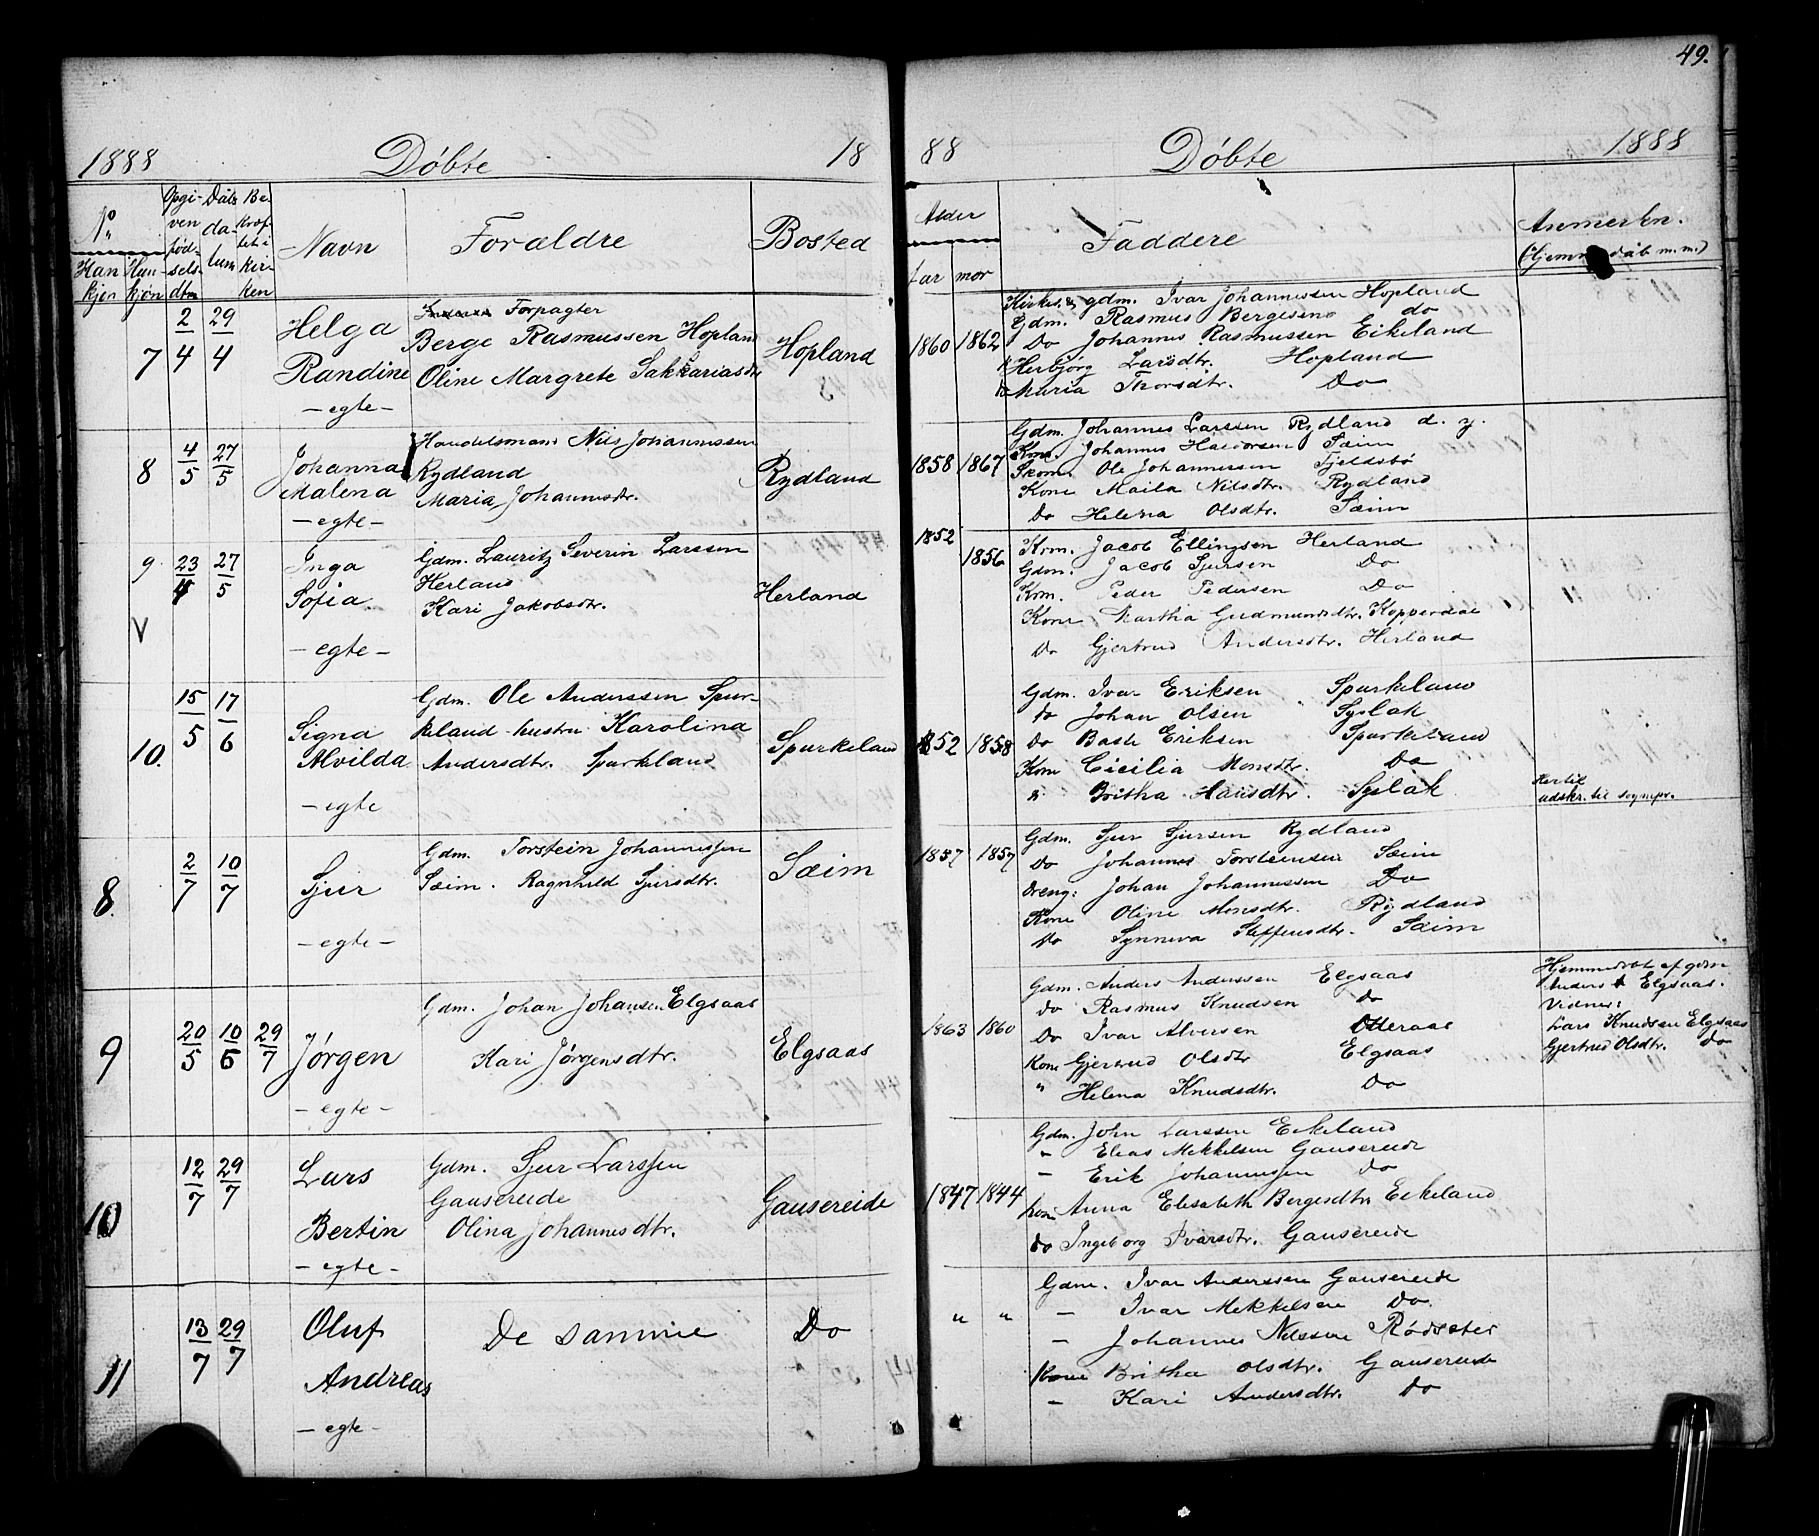 49.
1888 Døbte 18
88 Døbte 1888
No
Han kjøn
Hun- kjøn
Opgi- ven fød- sels- dtm
Døbs da- tum
Be- kræf- tet i kir- ken
Navn
Forældre
Bosted
Alder
far
mor
Faddere
Anmerkn.
(Hjemmedåb m.m.)
7
2/4
29/4
Helga
Randine
- egte -
Forpagter
Berge Rasmussen Hopland
Oline Margrete Sakkariasdtr
Hopland
1860 1862
gdm. Ivar Johannessen Hopland
Gdm. Rasmus Bergesen do
Do Johannes Rasmussen Eikeland
Herbjørg Larsdtr. Hopland
Maria Thorsdtr. Do
8
4/5
27/5
Johanna
Malena
- egte -
Handelsmand Nils Johannessen
Rydland
Maria Johannesdtr.
Rydland
1858 1867
Gdm. Johannes Larssen Rydland d. y.
Johannes Haldorsen Sæim
Ole Johannessen Fjeldsbø
Kone Maila Nilsdtr. Rydland
Do Helena Olsdtr. Sæim
9
V
23/4
27/5
Inga
Sofia
- egte -
Gdm. Lauritz Severin Larssen
Herland
Kari Jakobsdtr.
Herland
1852
1856
Krm. Jacob Ellingsen Herland
Gdm. Jacob Sjursen Do
Krm. Peder Pedersen Do
Kone Martha Gudmundsdtr. Kopperdal
Do Gjertrud Andersdtr. Herland
10.
15/5
17/6
Signa
Alvilda
- egte
Gdm. Ole Anderssen Spur-
keland hustru Karolina
Andersdtr. Spurkeland
Spurkeland
1852 1858
Gdm. Ivar Eriksen Spurkeland
do Johan Olsen Syslak
Do Baste Eriksen Spurkeland
Kone Cicilia Monsdtr. Do
" Britha Hansdtr. Syslak
Hertil
udskr. til sognepr.
8.
2/7
10/7
Sjur
- egte -
Gdm. Torstein Johannessen
Sæim. Ragnhild Sjursdtr.
Sæim
1857 1857
Gdm. Sjur Sjursen Rydland
Do Johannes Torsteinsen Sæim
Dreng: Johan Johannessen Do
Kone Oline Monsdtr. Rydland
Do Synneva Steffensdtr. Sæim
9
20/5
10/6
29/7
Jørgen
- egte -
Gdm. Johan Johansen Elgsaas
Kari Jørgensdtr.
Elgsaas
1863 1860
Gdm. Anders Anderssen Elgsaas
do Rasmus Knudsen do
Do Ivar Alversen Otteraas
Kone Gjertrud Olsdtr Elgsaas
" Helena Knudsdtr. Do
Hjemmedøbt af gdm
Anders A Elgsaas.
Vidner:
Lars Knudsen Elgsaas
Gjertrud Olsdtr. Do
10
12/7
29/7
Lars
Bertin
- egte -
Gdm. Sjur Larssen
Gausereide
Olina Johannesdtr.
Gausereide
1847 1844
Gdm. John Larssen Eikeland
" Elias Mekkelsen Gausereide
- Erik Johannesen do
kone Anna Elisabeth Bergesdtr Eikeland
do Ingeborg Ivarsdtr. Gausereide
11
13/7
29/7
Oluf
Andreas
- egte -
De samme
Do
" "
Gdm. Ivar Anderssen Gausereide
- Ivar Mekkelsen Do.
- Johannes Nilssen Rødseter
Kone Britha Olsdtr. Gausereide
- Kari Andersdtr. Do